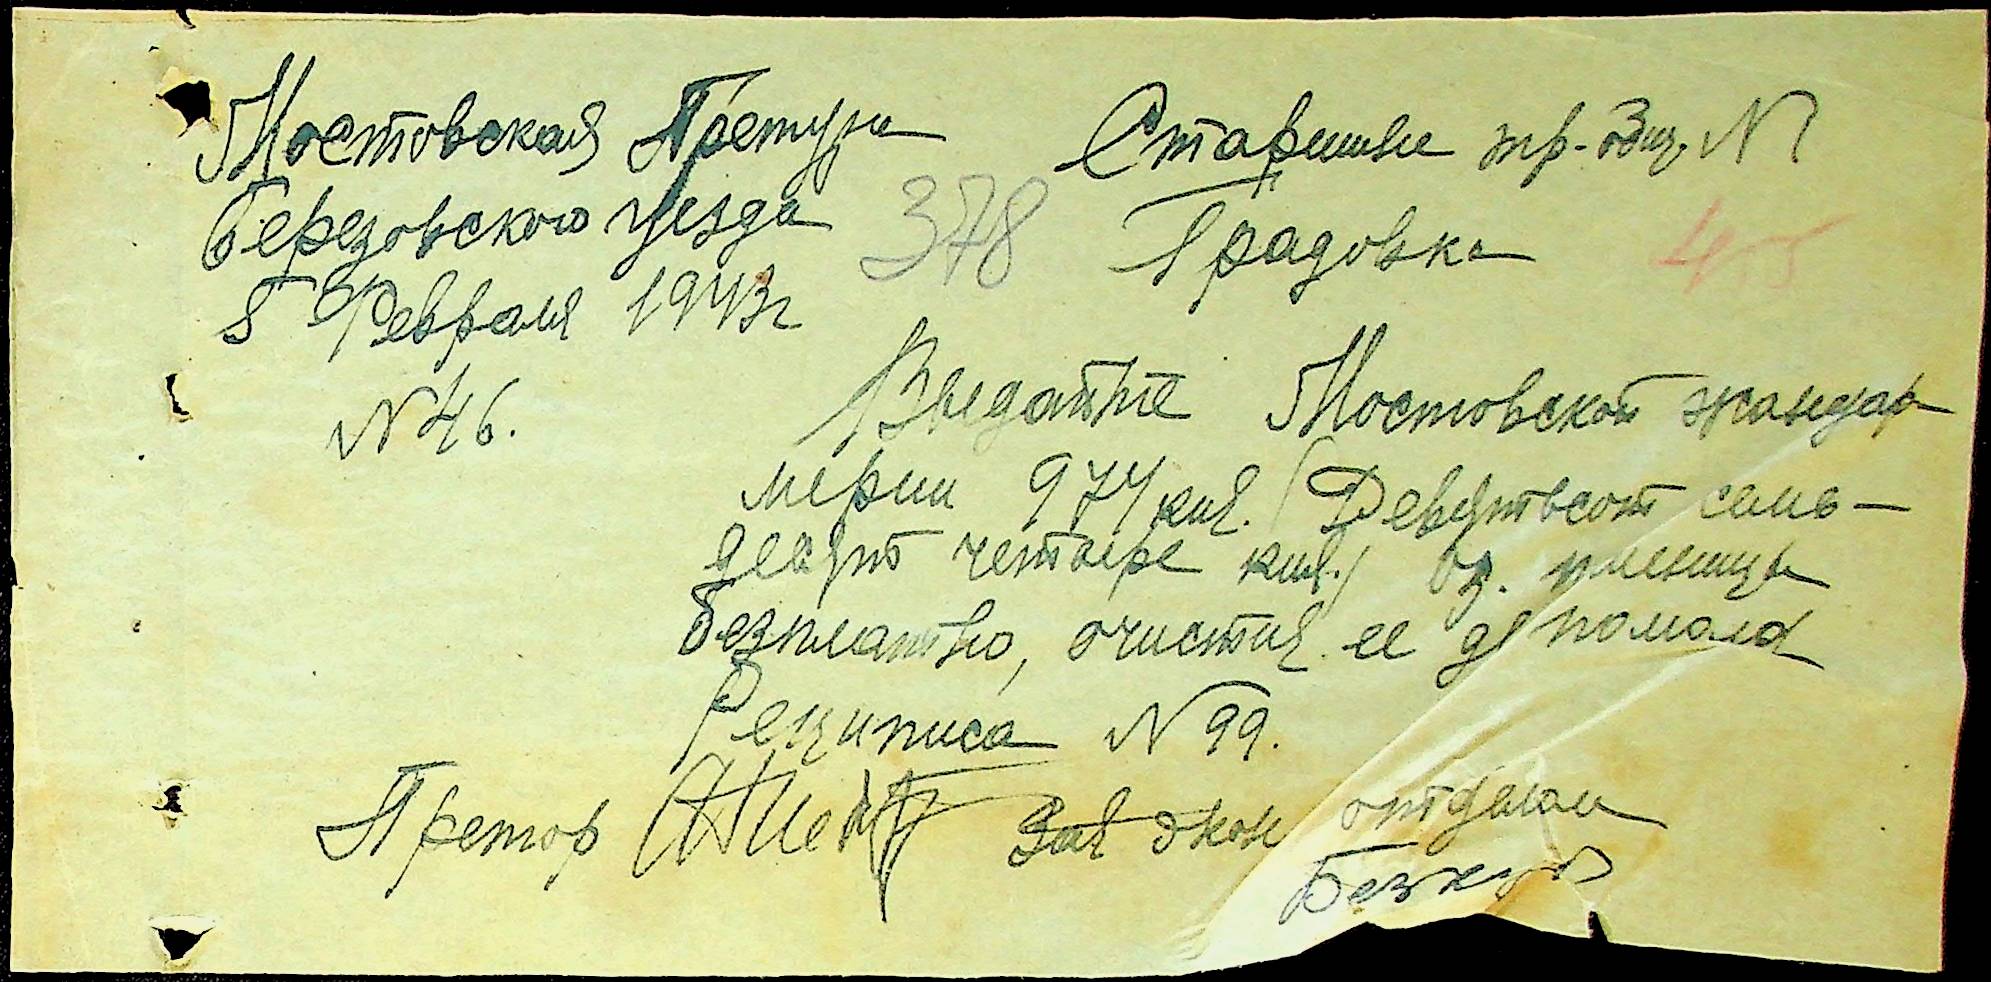 Мостовская Претура
Березовского уезда
5 Февраля 1943г
N 46.
Старшине тр. общ. N 1
Градовка
378
45
Выдайте Мостовской жандар
мерии 974 кил. (Девятьсот семь-
десят четыре кил.) оз. пшеницы
безплатно, очистив ее для помола
Рецписа N 99.
Претор
Зав Экон отделом